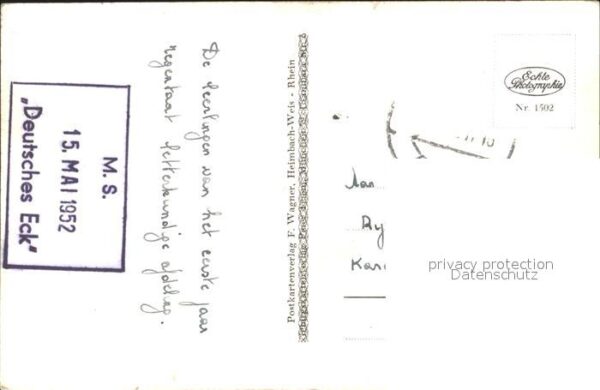 M. S.
15. MAI 1952
„Deutsches Eck“
De leerlingen van het eerste jaar
regentaat letterkundige afdeling.
Postkartenverlag F. Wagner, Heimbach-Weis - Rhein
Echte
Photographie
Nr. 1502
Aan
Ry
Kas
privacy protection
Datenschutz